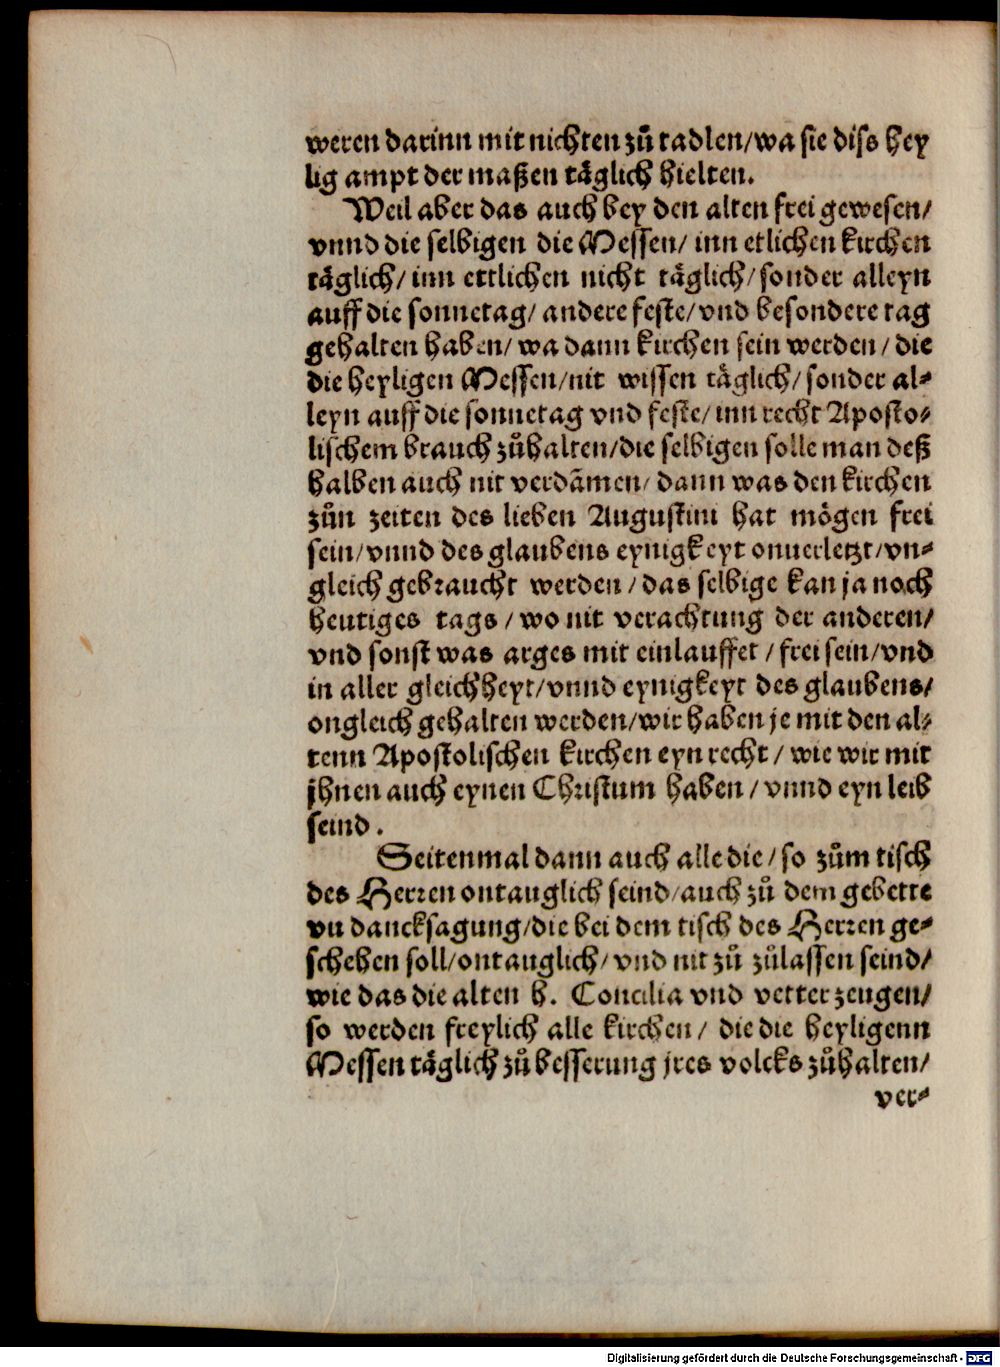 weren darinn mit nichten zů tadlen/wa sie diss hey
lig ampt der maßen täglich hielten.
Weil aber das auch bey den alten frei gewesen/
vnnd die selbigen die Messen/ inn etlichen kirchen
täglich/ inn ettlichen nicht täglich/ sonder alleyn
auff die sonnetag/ andere feste/ vnd besondere tag
gehalten haben/ wa dann kirchen sein werden/ die
die heyligen Messen/nit wissen täglich/ sonder al⸗
leyn auff die sonnetag vnd feste/ inn recht Aposto⸗
lischem brauch zůhalten/die selbigen solle man deß
halben auch nit verdãmen/ dann was den kirchen
zůn zeiten des lieben Augustini hat mögen frei
sein/vnnd des glaubens eynigkeyt onuerletzt/vn⸗
gleich gebraucht werden/ das selbige kan ja noch
heutiges tags/ wo nit verachtung der anderen/
vnd sonst was arges mit einlauffet/ frei sein/vnd
in aller gleichheyt/vnnd eynigkeyt des glaubens/
ongleich gehalten werden/wir haben je mit den al⸗
tenn Apostolischen kirchen eyn recht/ wie wir mit
jhnen auch eynen Christum haben/ vnnd eyn leib
seind.
Seitenmal dann auch alle die/ so zům tisch
des Herren ontauglich seind/auch zů dem gebette
vn dancksagung/die bei dem tisch des Herren ge⸗
schehen soll/ontauglich/ vnd nit zů zůlassen seind/
wie das die alten h. Concilia vnd vetter zeugen/
so werden freylich alle kirchen/ die die heyligenn
Messen täglich zů besserung jres volcks zůhalten/
ver⸗
Digitalisierung gefördert durch die Deutsche Forschungsgemeinschaft - DFG